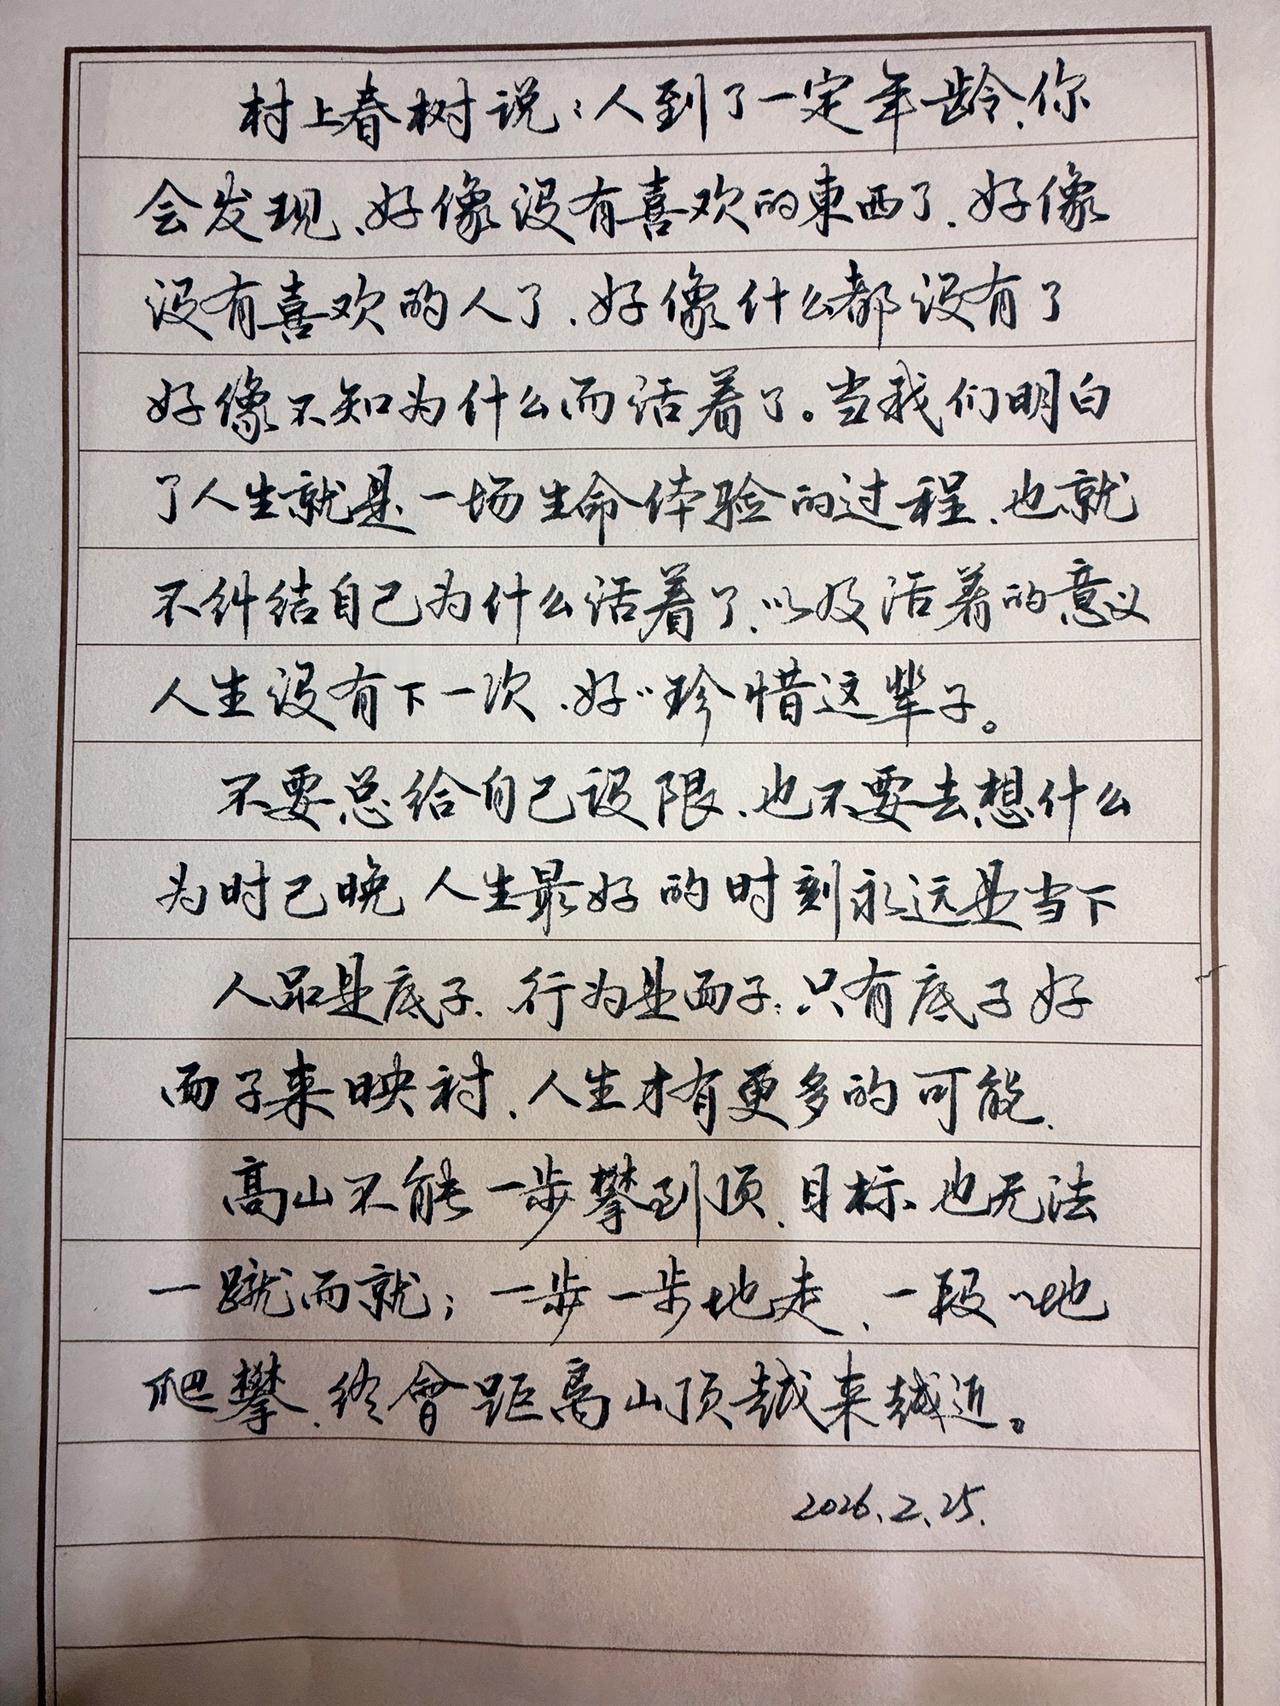 村上春树说：人到了一定年龄、你
会发现、好像没有喜欢的東西了、好像
没有喜欢的人了、好像什么都没有了
好像不知为什么而活着了。当我们明白
了人生就是一场生命体验的过程、也就
不纠结自己为什么活着了、以及活着的意义
人生没有下一次、好〃珍惜这辈子。
不要总给自己设限、也不要去想什么
为时已晚 人生最好的时刻永远是当下
人品是底子、行为是面子；只有底子好
面子来映衬、人生才有更多的可能、
高山不能一步攀到顶、目标也无法
一蹴而就；一步一步地走、一段〃地
爬攀、终會距离山顶越来越近。
2026.2.25.